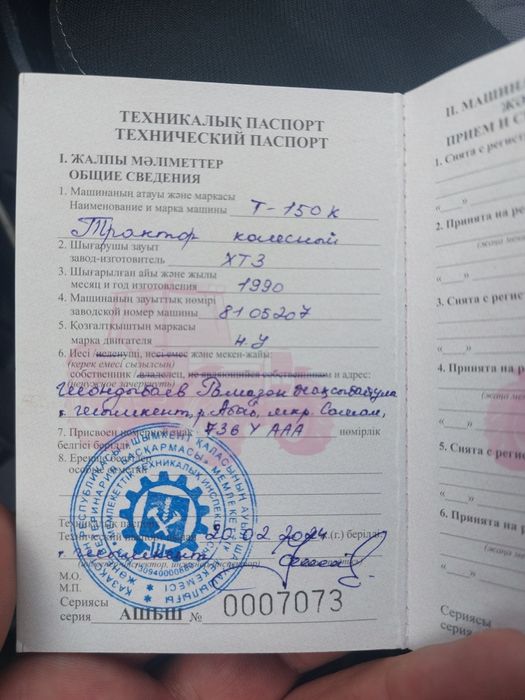 ТЕХНИКАЛЫҚ ПАСПОРТ
ТЕХНИЧЕСКИЙ ПАСПОРТ
I. ЖАЛПЫ МӘЛІМЕТТЕР
ОБЩИЕ СВЕДЕНИЯ
1. Машинаның атауы және маркасы
Наименование и марка машины Т-150К
Трактор колесный
2. Шығарушы зауыт
завод-изготовитель ХТЗ
3. Шығарылған айы және жылы
месяц и год изготовления 1990
4. Машинаның зауыттық нөмірі
заводской номер машины 8105207
5. Қозғалтқыштың маркасы
марка двигателя Н.У
6. Иесі /иеленуші, иесі емес және мекен-жайы:
(керек емесі сызылсын)
собственник / владелец, не являющийся собственником и адрес:
(ненужное зачеркнуть)
г. Шымкент, р. Абай, мкр.
7. Присвоен номерной знак 736 Y AAA нөмірлік
белгісі берілді
8. Ерекше белгілер
особые отметки
Технический паспорт выдан 20.02.2024 ж.(г.) берілді
г. Шымкент
М.О.
М.П.
Сериясы
серия АШБШ № 0007073
II. МАШИНА
ПРИЕМ И С
1. Снята с регис
«___»
2. Принята на ре
(жаңа мекен
«___»
3. Снята с регис
«___»
4. Принята на р
(жаңа
«___»
5. Снята с регис
«___»
6. Принята на р
(жаңа
«___»
Сериясы
серия